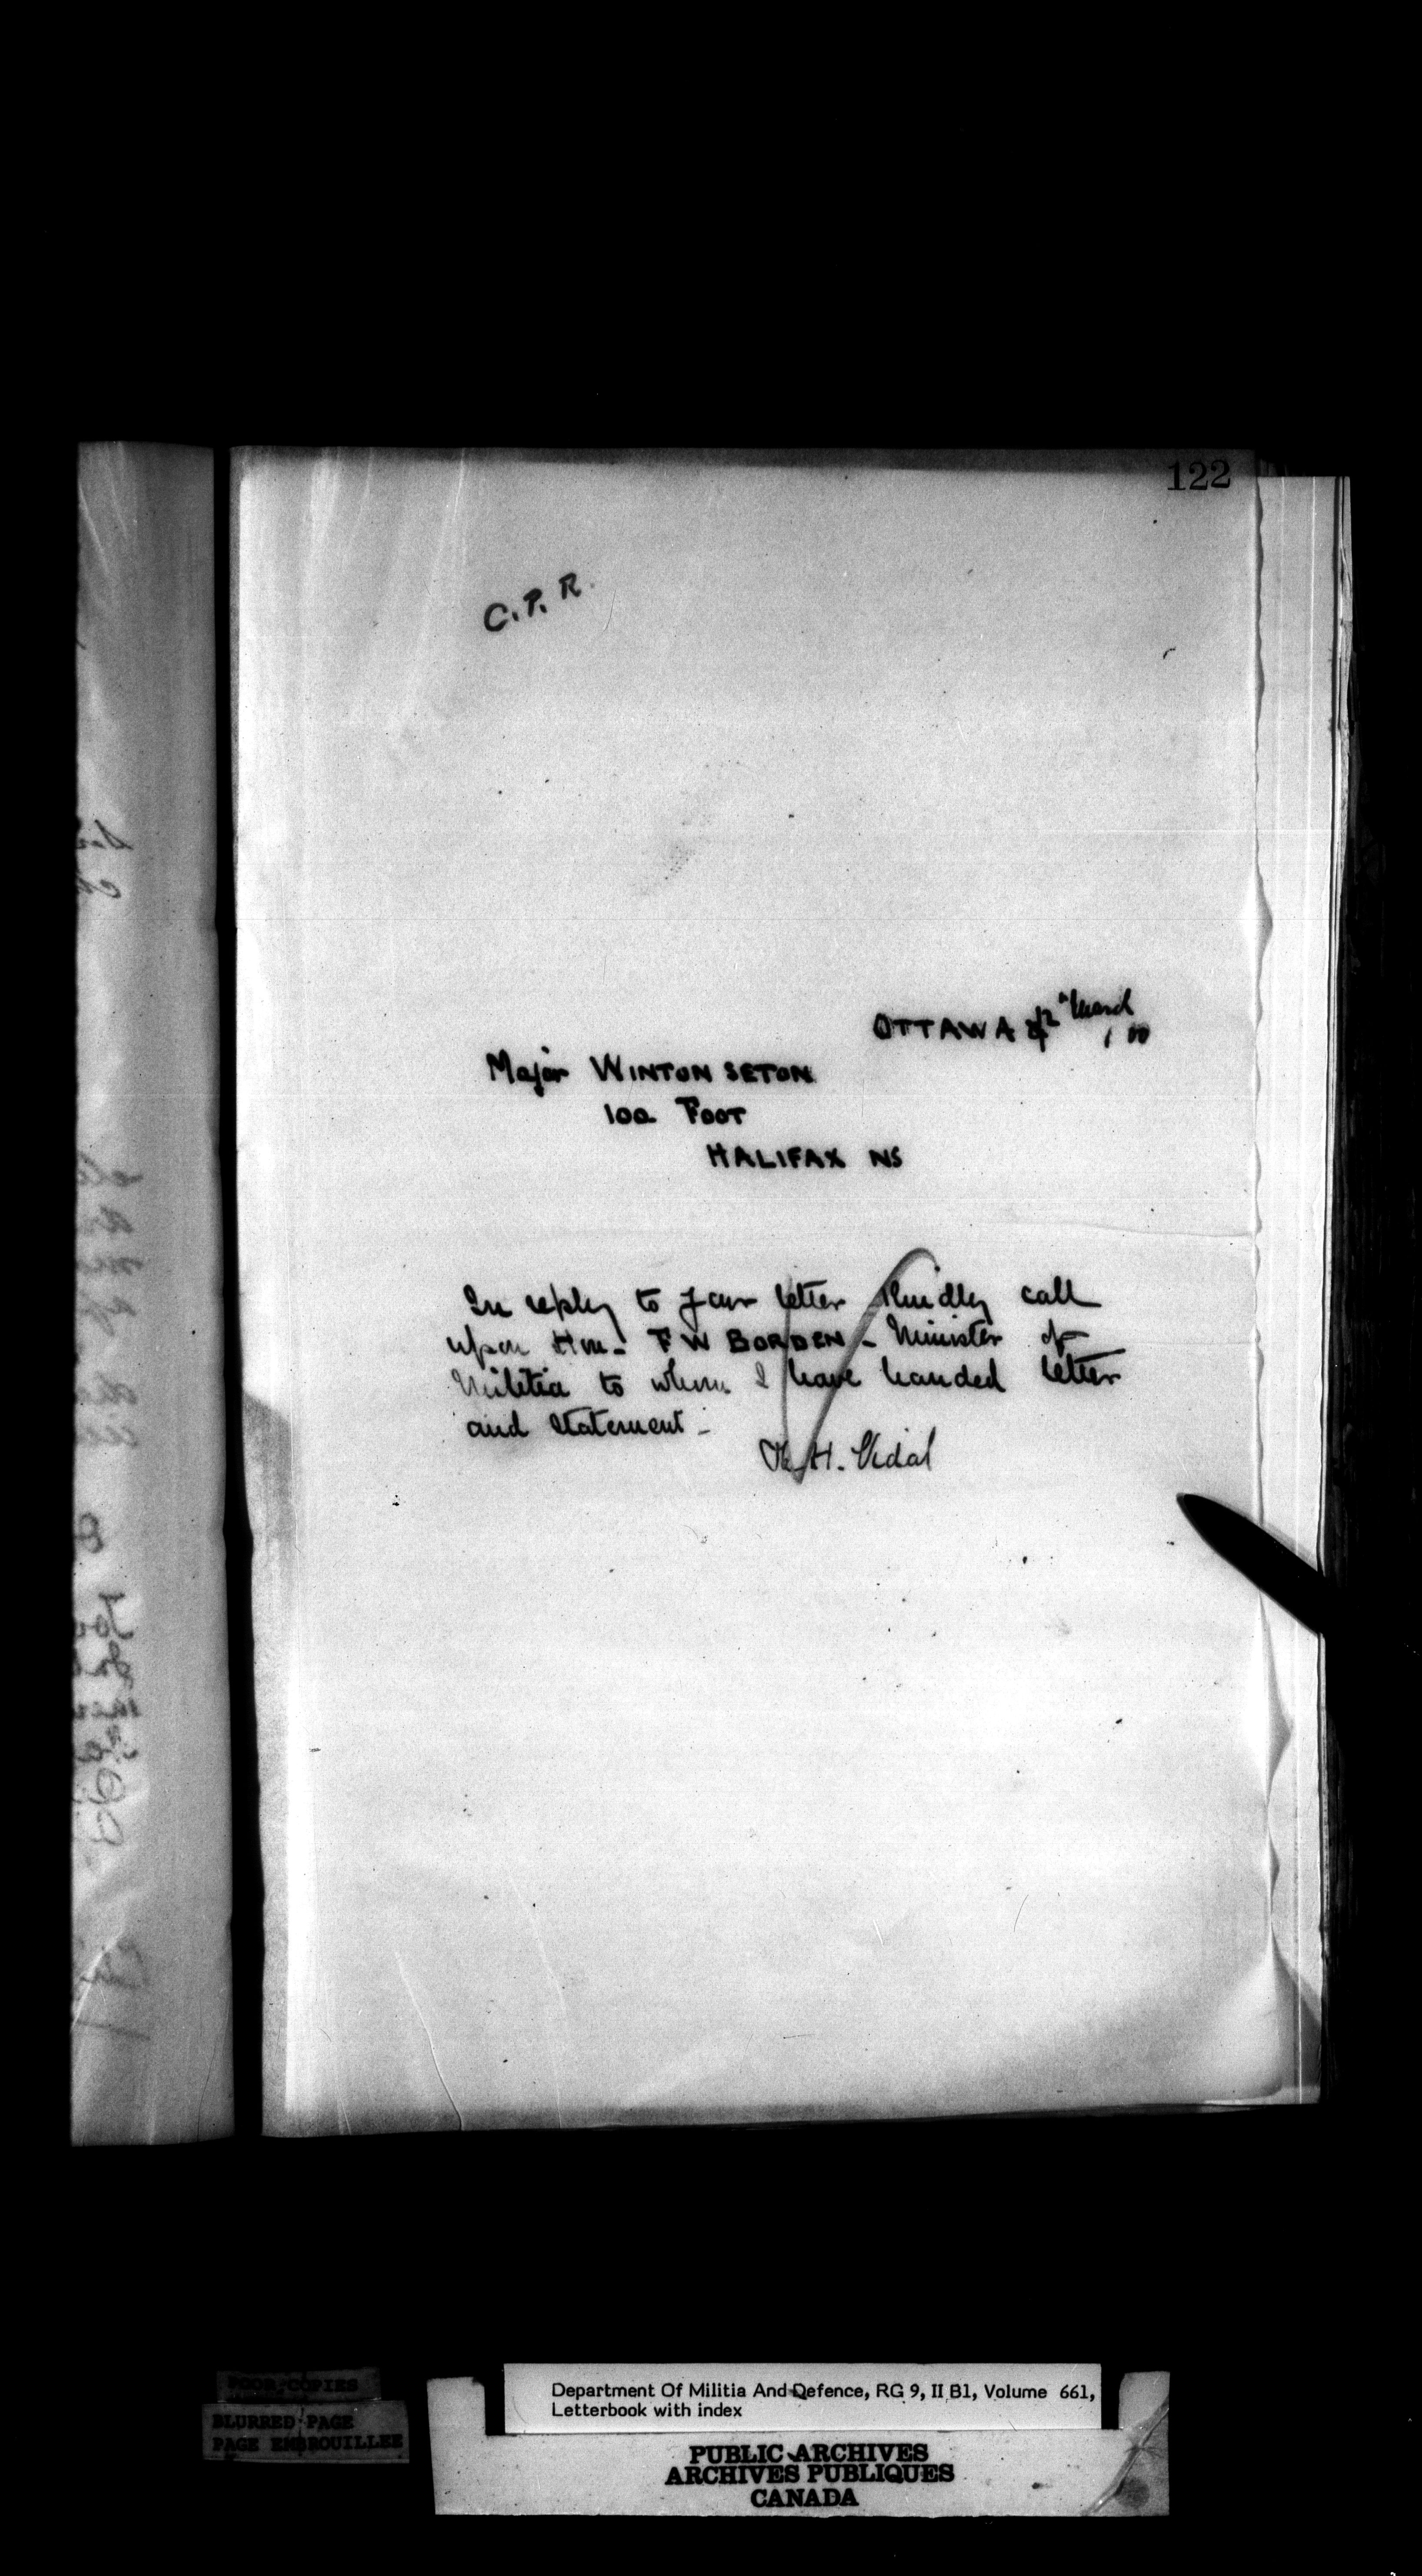 122
C.P.R.
OTTAWA 12" March
/ 00
Major WINTON SETON
100 FOOT
HALIFAX NS
In reply to your letter Kindly call
upon Hon- F W BORDEN - Minister of
Militia to whom I have handed letter
and statement -
H. Vidal
POOR COPIES
BLURRED PAGE
PAGE EMBROUILLEE
Department Of Militia And Defence, RG 9, II B1, Volume 661,
Letterbook with index
PUBLIC ARCHIVES
ARCHIVES PUBLIQUES
CANADA